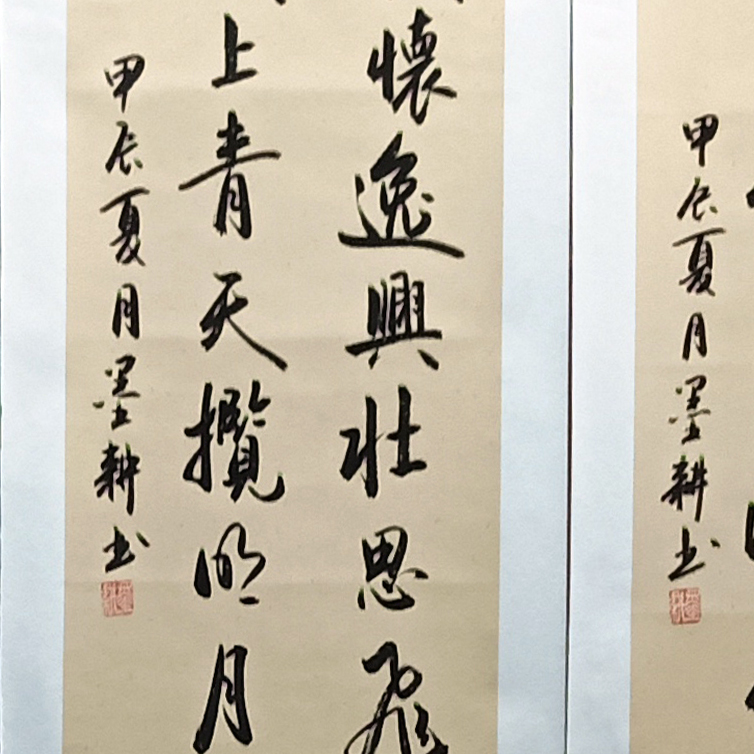 懷逸興壯思飛
上青天攬明月
甲辰夏月墨耕书
甲辰夏月墨耕书